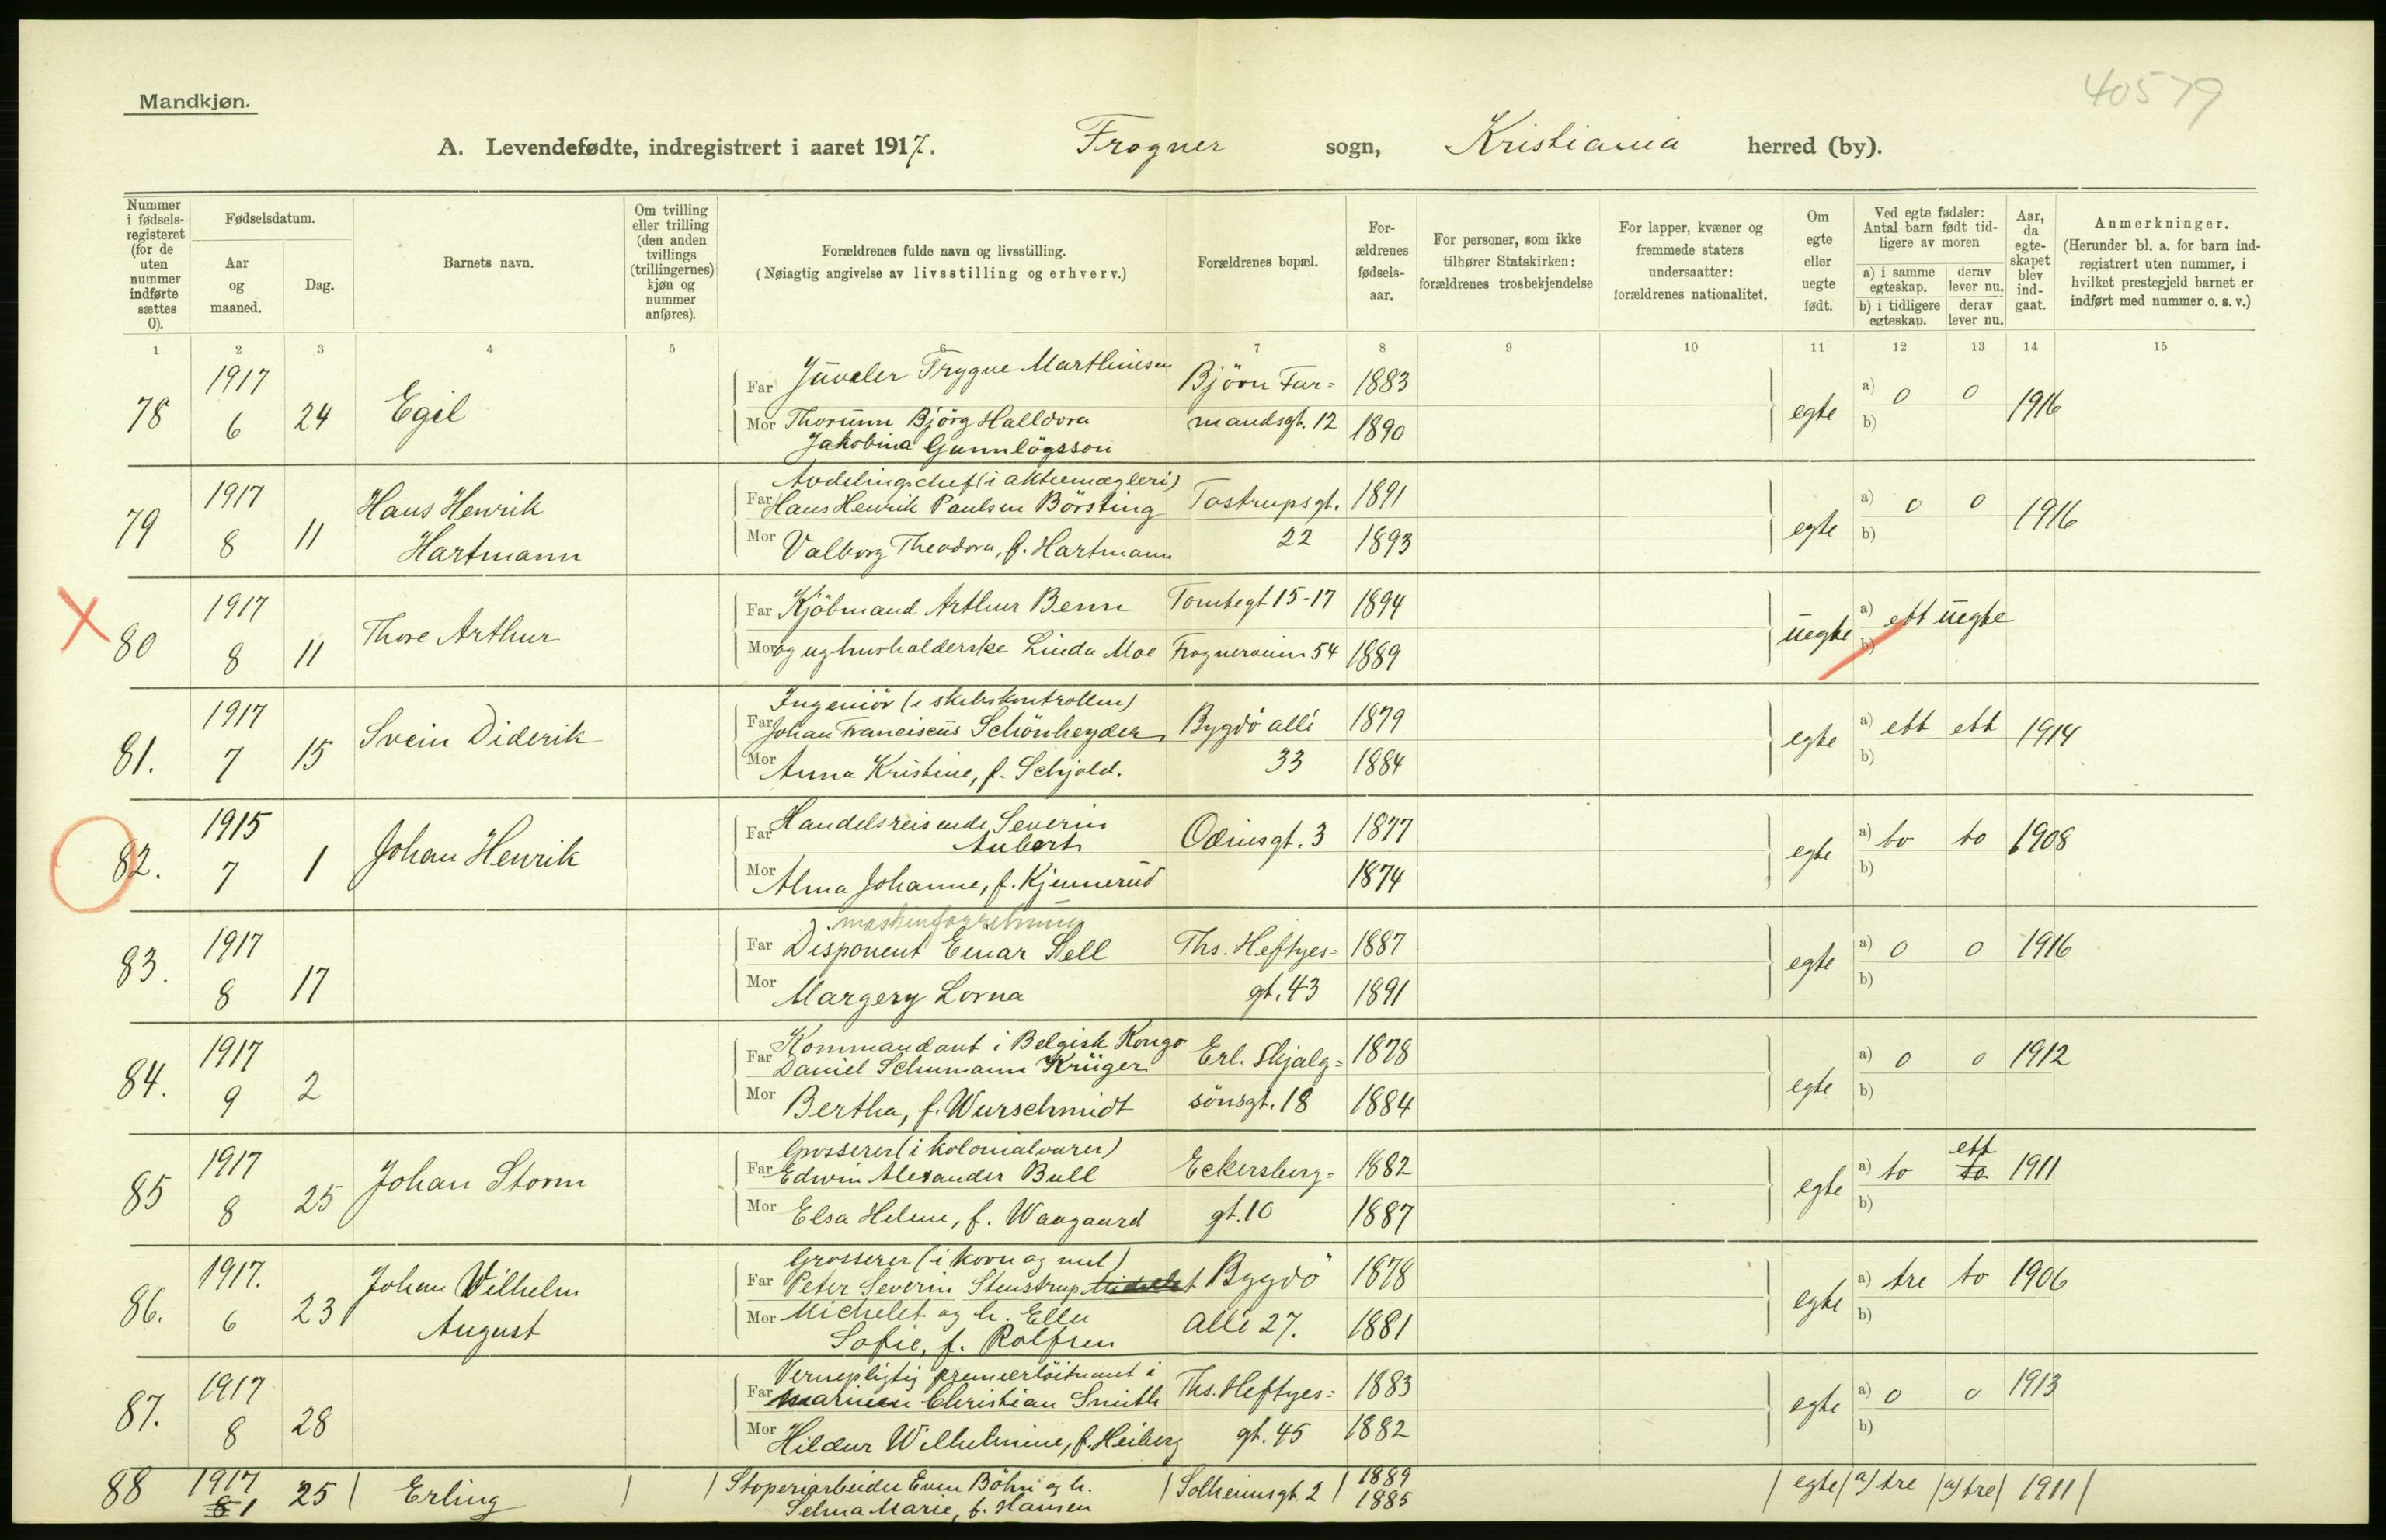 40579
Mandkjøn.
A. Levendefødte, indregistrert i aaret 1917. Frogner sogn, Kristiania herred (by).
Nummer i fødsels-registeret (for de uten nummer indførte sættes 0).
Fødselsdatum.
Aar og maaned.
Dag.
Barnets navn.
Om tvilling eller trilling (den anden tvillings (trillingernes) kjøn og nummer anføres).
Forældrenes fulde navn og livsstilling.
(Nøiagtig angivelse av livsstilling og erhverv.)
Forældrenes bopæl.
For-ældrenes fødsels-aar.
For personer, som ikke tilhører Statskirken: forældrenes trosbekjendelse
For lapper, kvæner og fremmede staters undersaatter: forældrenes nationalitet.
Om egte eller uegte født.
Ved egte fødsler: Antal barn født tid-ligere av moren
a) i samme egteskap.
derav lever nu.
b) i tidligere egteskap.
derav lever nu.
Aar, da egte-skapet blev ind-gaat.
Anmerkninger.
(Herunder bl. a. for barn ind-registrert uten nummer, i hvilket prestegjeld barnet er indført med nummer o. s. v.)
1 2 3 4 5 6 7 8 9 10 11 12 13 14 15
1917 Far Juveler Trygve Marthinsen Bjørn Far= 1883 a) 0 0
78 6 24 Egil egte 1916
Mor Thorunn Björg Halldora mandsgt. 12 1890 b)
Jakobina Gunnlögsson
Avdelingschef (i aktiemægleri)
1917 Hans Henrik Far Hans Henrik Paulsen Börsting Tostrupsgt. 1891 a) 0 0
79 8 11 Hartmann egte 1916
Mor Valborg Theodora, f. Hartmann 22 1893 b)
1917 Far Kjöbmand Arthur Benn Tomtegt 15-17 1894 a) ett uegte
80 8 11 Thore Arthur uegte
Mor og ug husholderske Linda Moe Frognerveien 54 1889 b)
Ingeniör (i skibskontrollen)
1917 Far Johan Franciscus Schönheyder, Bygdö allé 1879 a) ett ett 1914
81. 7 15 Svein Diderik egte
Mor Anna Kristine, f. Schjold. 33 1884 b)
1915 Far Handelsreisende Severin Odinsgt. 3 1877 a) to to 1908
Aubert
82. 7 1 Johan Henrik egte
Mor Alma Johanne, f. Kjennerud 1874 b)
maskinforretning
1917 Far Disponent Einar Sell Ths. Heftyes= 1887 a) 0 0 1916
83. 8 17 egte
Mor Margery Lorna gt. 43 1891 b)
Kommandant i Belgisk Kongo
1917 Far Daniel Schumann Krüger Erl. Skjalg= 1878 a) 0 0 1912
84. 9 2 egte
Mor Bertha, f. Wurschmidt sönsgt. 18 1884 b)
Grosserer (i kolonialvarer) ett
1917 Far Edwin Alexander Bull Eckersberg= 1882 a) to to 1911
85 8 25 Johan Storm egte
Mor Elsa Helene, f. Waagaard gt. 10 1887 b)
Grosserer (i korn og mel)
1917. Johan Wilhelm Far Peter Severin Steustrup Bygdö 1878 a) tre to 1906
86. 6 23 August egte
Mor Michelet og h. Ellen allé 27. 1881 b)
Sofie, f. Rolfsen
Vernepligtig premierlöitnant i
1917 Far marinen Christian Smith Ths. Heftyes= 1883 a) 0 0 1913
87. 8 28 egte
Mor Hildur Wilhelmine, f. Heiberg gt. 45 1882 b)
88 1917 25 Erling Stoperiarbeider Even Böhn og h. Solheimsgt. 2 1889 egte a) tre a) tre 1911
8 1 Selma Marie, f. Hansen 1885